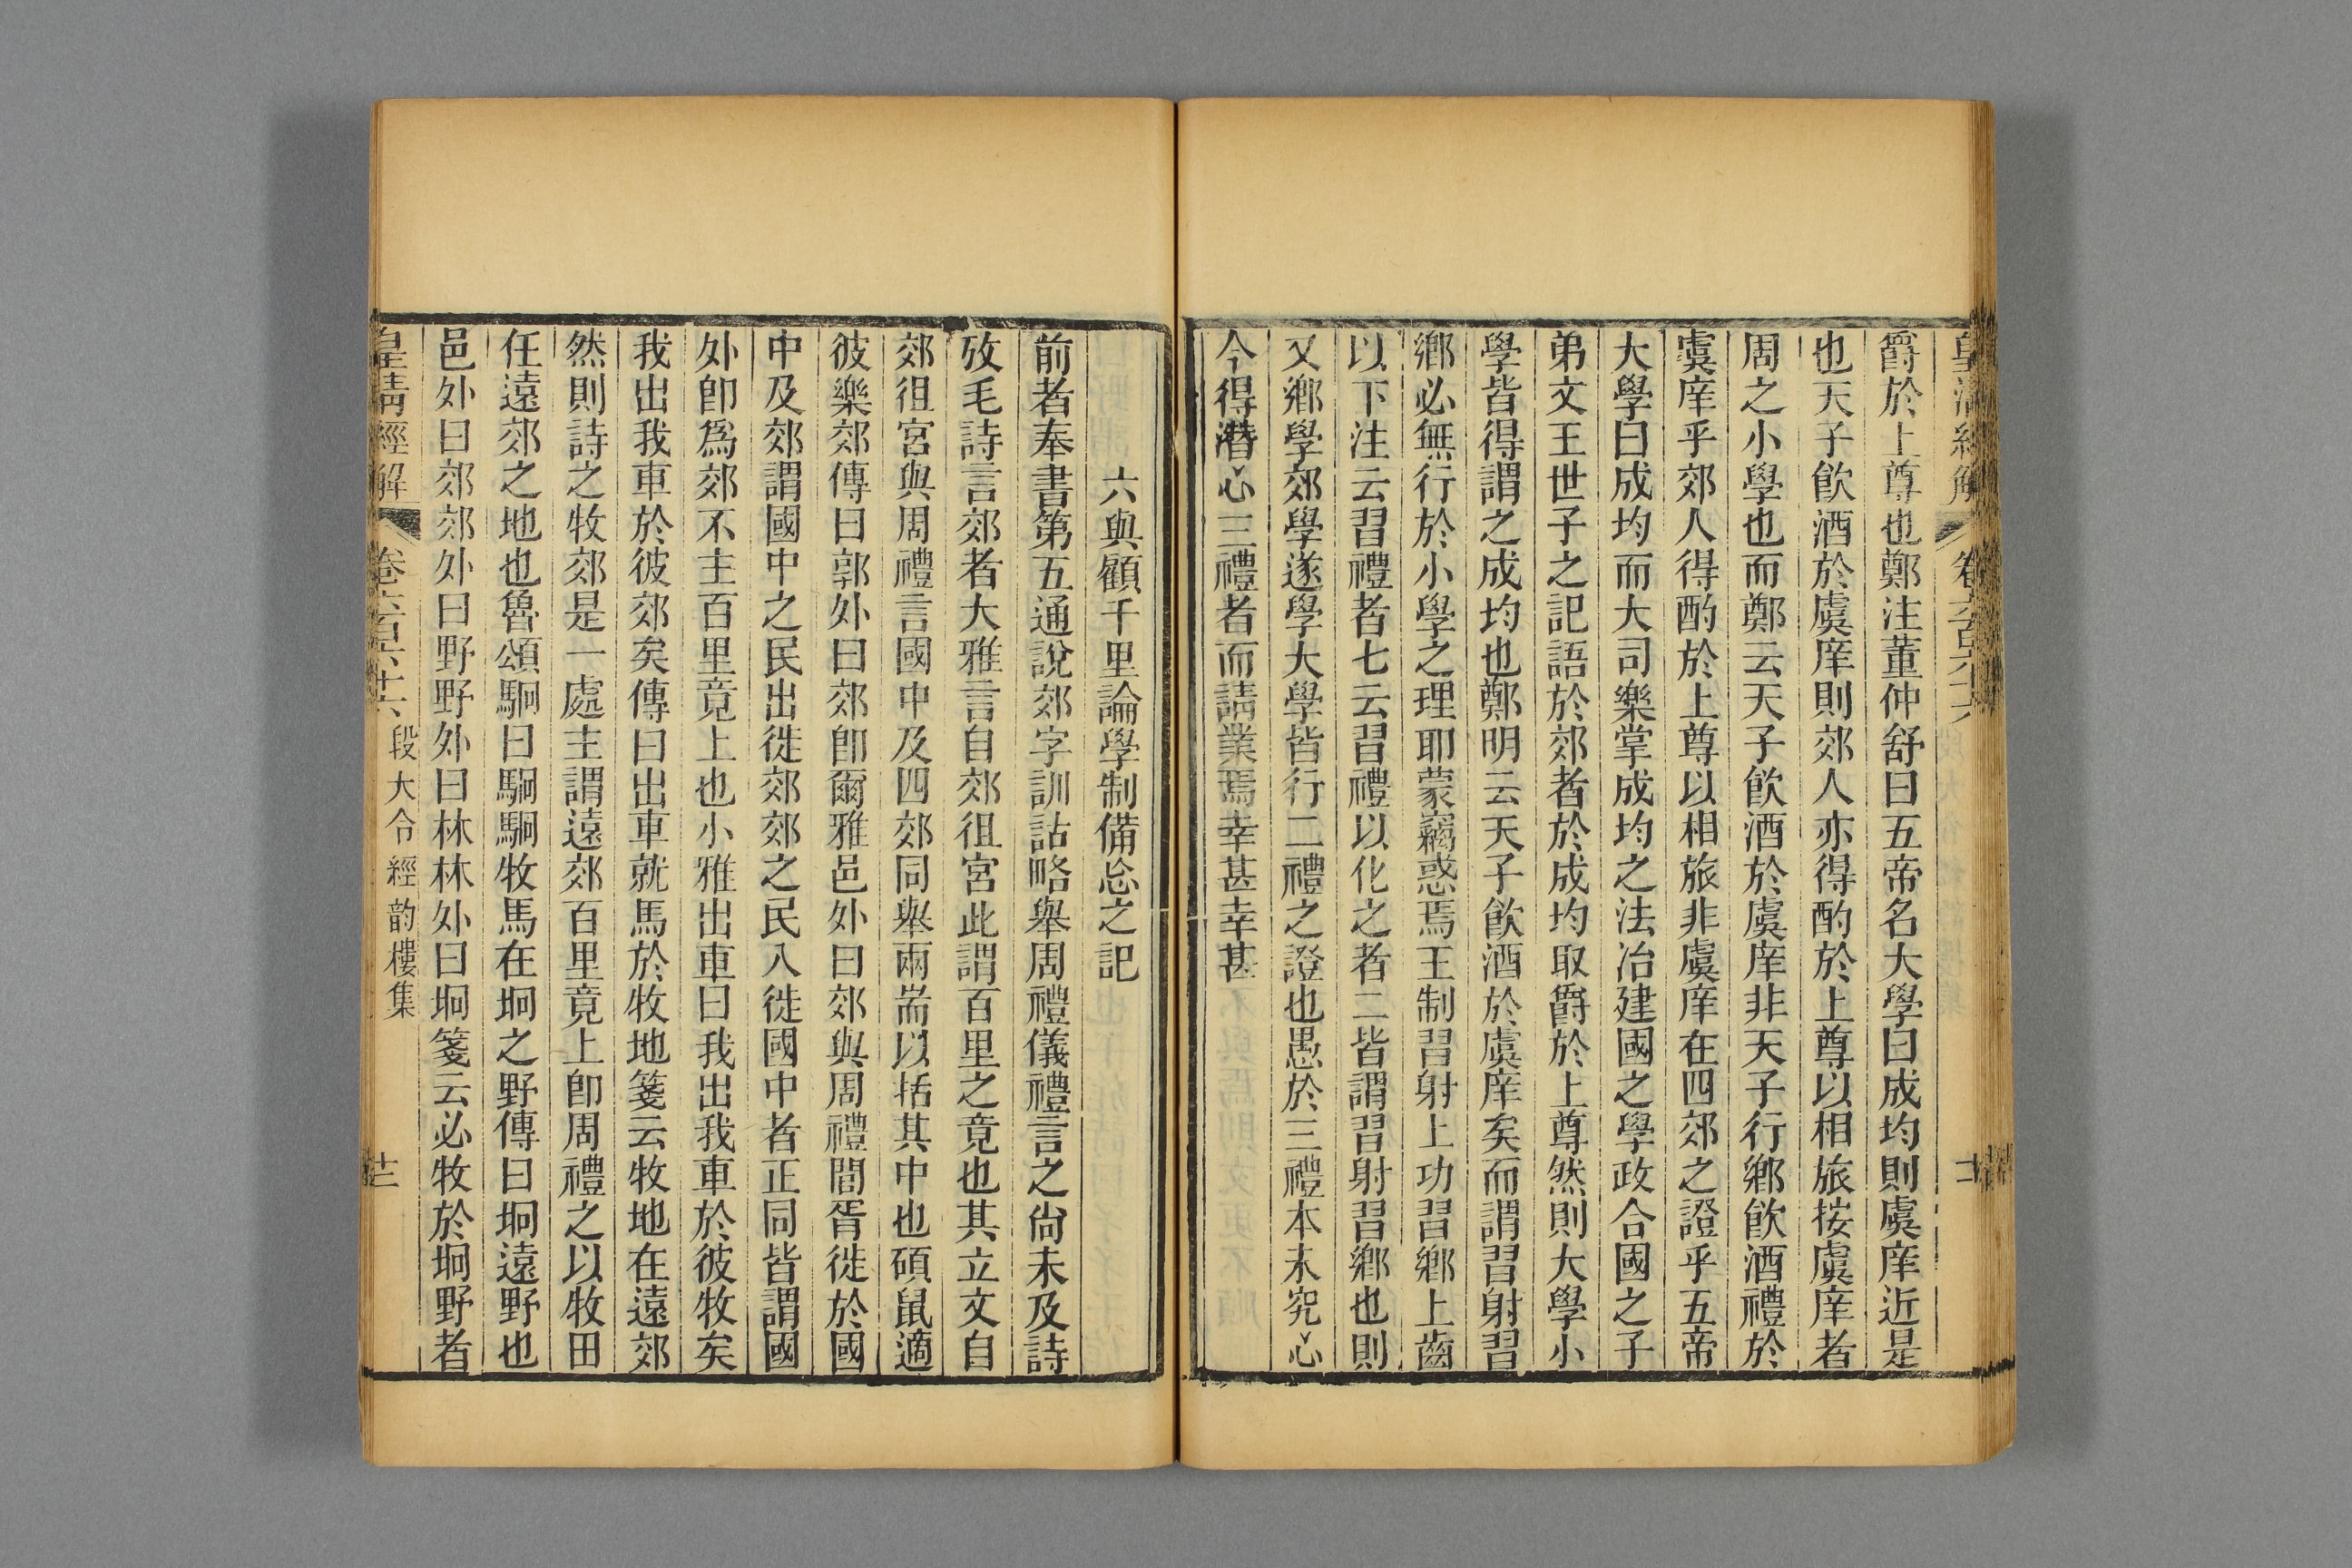 爵於上尊也鄭注董仲舒曰五帝名大學曰成均則虞庠近是
也天子飮酒於虞庠則郊人亦得酌於上尊以相旅按虞庠者
周之小學也而鄭云天子飮酒於虞庠非天子行鄕飮酒禮於
虞庠乎郊人得酌於上尊以相旅非虞庠在四郊之證乎五帝
大學曰成均而大司樂掌成均之法治建國之學政合國之子
弟文王世子之記語於郊者於成均取爵於上尊然則大學小
學皆得謂之成均也鄭明云天子飮酒於虞庠矣而謂習射習
鄕必無行於小學之理耶蒙竊惑焉王制習射上功習鄕上齒
以下注云習禮者七云習禮以化之者二皆謂習射習鄕也則
又鄕學郊學遂學大學皆行二禮之證也愚於三禮本未究心
今得潛心三禮者而請業焉幸甚幸甚
六與顧千里論學制備忘之記
前者奉書第五通說郊字訓詁略舉周禮儀禮言之尙未及詩
攷毛詩言郊者大雅言自郊徂宮此謂百里之竟也其立文自
郊徂宮與周禮言國中及四郊同舉兩耑以括其中也碩鼠適
彼樂郊傳曰郭外曰郊卽爾雅邑外曰郊與周禮閭胥徙於國
中及郊謂國中之民出徙郊郊之民入徙國中者正同皆謂國
外卽爲郊不主百里竟上也小雅出車曰我出我車於彼牧矣
我出我車於彼郊矣傳曰出車就馬於牧地箋云牧地在遠郊
然則詩之牧郊是一處主謂遠郊百里竟上卽周禮之以牧田
任遠郊之地也魯頌駉曰駉駉牧馬在坰之野傳曰坰遠野也
邑外曰郊郊外曰野野外曰林林外曰坰箋云必牧於坰野者
皇淸經解 卷六百六十六 段大令經韵樓集 十二